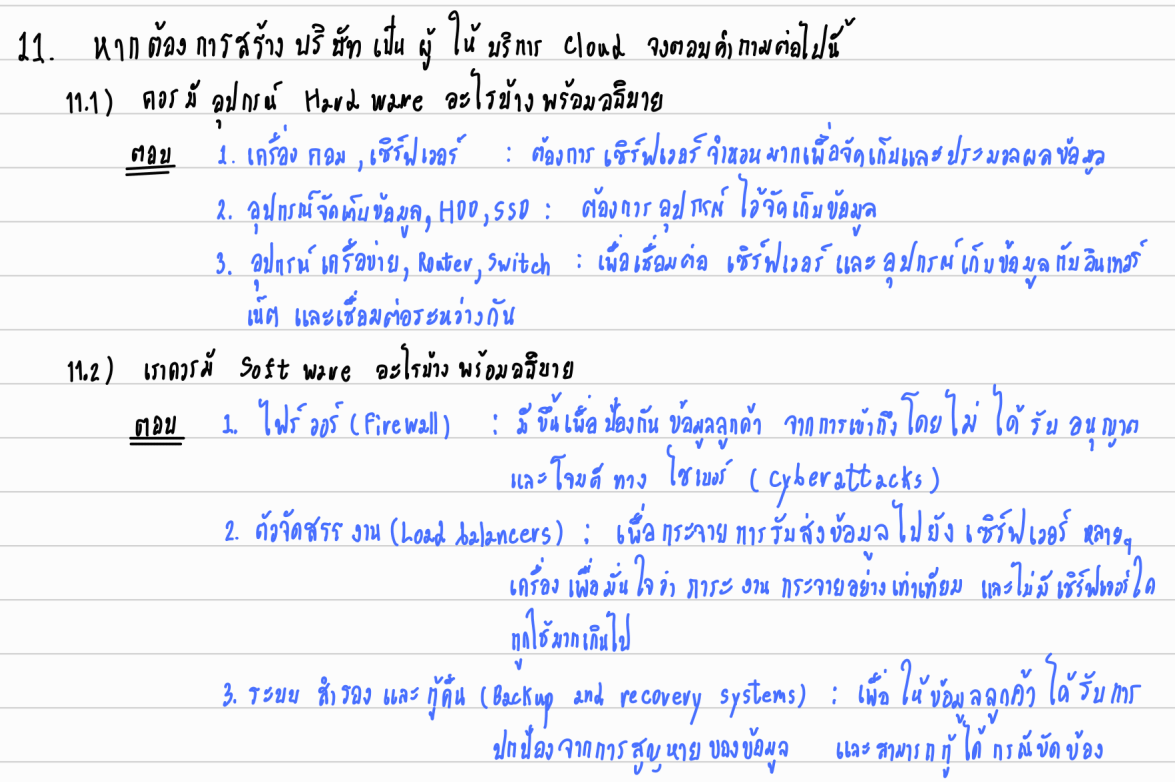 11. หากต้องการสร้างบริษัทเป็นผู้ให้บริการ Cloud จงตอบคำถามต่อไปนี้
11.1) ควรมีอุปกรณ์ Hardware อะไรบ้างพร้อมอธิบาย
ตอบ 1. เครื่องคอม, เซิร์ฟเวอร์ : ต้องการเซิร์ฟเวอร์จำนวนมากเพื่อจัดเก็บและประมวลผลข้อมูล
2. อุปกรณ์จัดเก็บข้อมูล, HDD, SSD : ต้องการอุปกรณ์ไว้จัดเก็บข้อมูล
3. อุปกรณ์เครือข่าย, Router, Switch : เพื่อเชื่อมต่อ เซิร์ฟเวอร์ และ อุปกรณ์เก็บข้อมูลกับอินเทอร์
เน็ต และเชื่อมต่อระหว่างกัน
11.2) เราควรมี Software อะไรบ้าง พร้อมอธิบาย
ตอบ 1. ไฟร์วอร์ (Firewall) : มีขึ้นเพื่อป้องกันข้อมูลลูกค้า จากการเข้าถึงโดยไม่ได้รับอนุญาต
และโจมตีทางไซเบอร์ (Cyberattacks)
2. ตัวจัดสรรงาน (Load balancers) : เพื่อกระจายการรับส่งข้อมูลไปยังเซิร์ฟเวอร์ หลายๆ
เครื่อง เพื่อมั่นใจว่า ภาระงานกระจายอย่างเท่าเทียม และไม่มีเซิร์ฟเวอร์ใด
ถูกใช้มากเกินไป
3. ระบบสำรองและกู้คืน (Backup and recovery systems) : เพื่อให้ข้อมูลลูกค้าได้รับการ
ปกป้องจากการสูญหายของข้อมูล และสามารถกู้ได้กรณีขัดข้อง